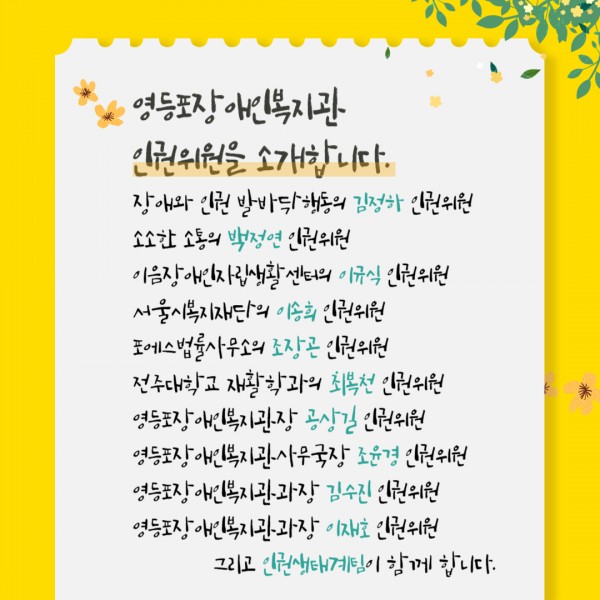 영등포장애인복지관
인권위원을 소개합니다.
장애와 인권 발바닥행동의 김정하 인권위원
소소한 소통의 백정연 인권위원
이음장애인자립생활센터의 이규식 인권위원
서울시복지재단의 이송희 인권위원
포에스법률사무소의 조장곤 인권위원
전주대학교 재활학과의 최복천 인권위원
영등포장애인복지관장 공상길 인권위원
영등포장애인복지관 사무국장 조윤경 인권위원
영등포장애인복지관 과장 김수진 인권위원
영등포장애인복지관 과장 이재호 인권위원
그리고 인권생태계팀이 함께 합니다.